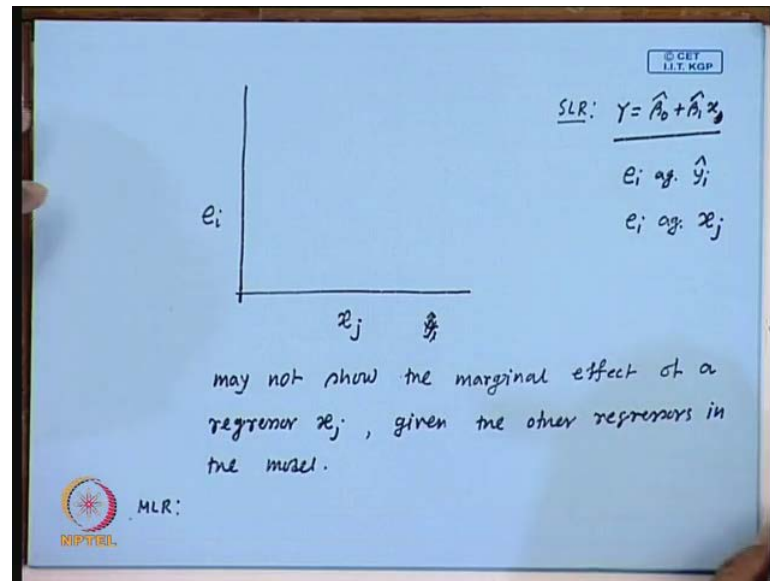 © CET
I.I.T. KGP
SLR: Y = β̂₀ + β̂₁ x
eᵢ ag. ŷᵢ
eᵢ ag. xⱼ
eᵢ
xⱼ ŷᵢ
may not show the marginal effect of a
regressor xⱼ, given the other regressors in
the model.
MLR:
NPTEL